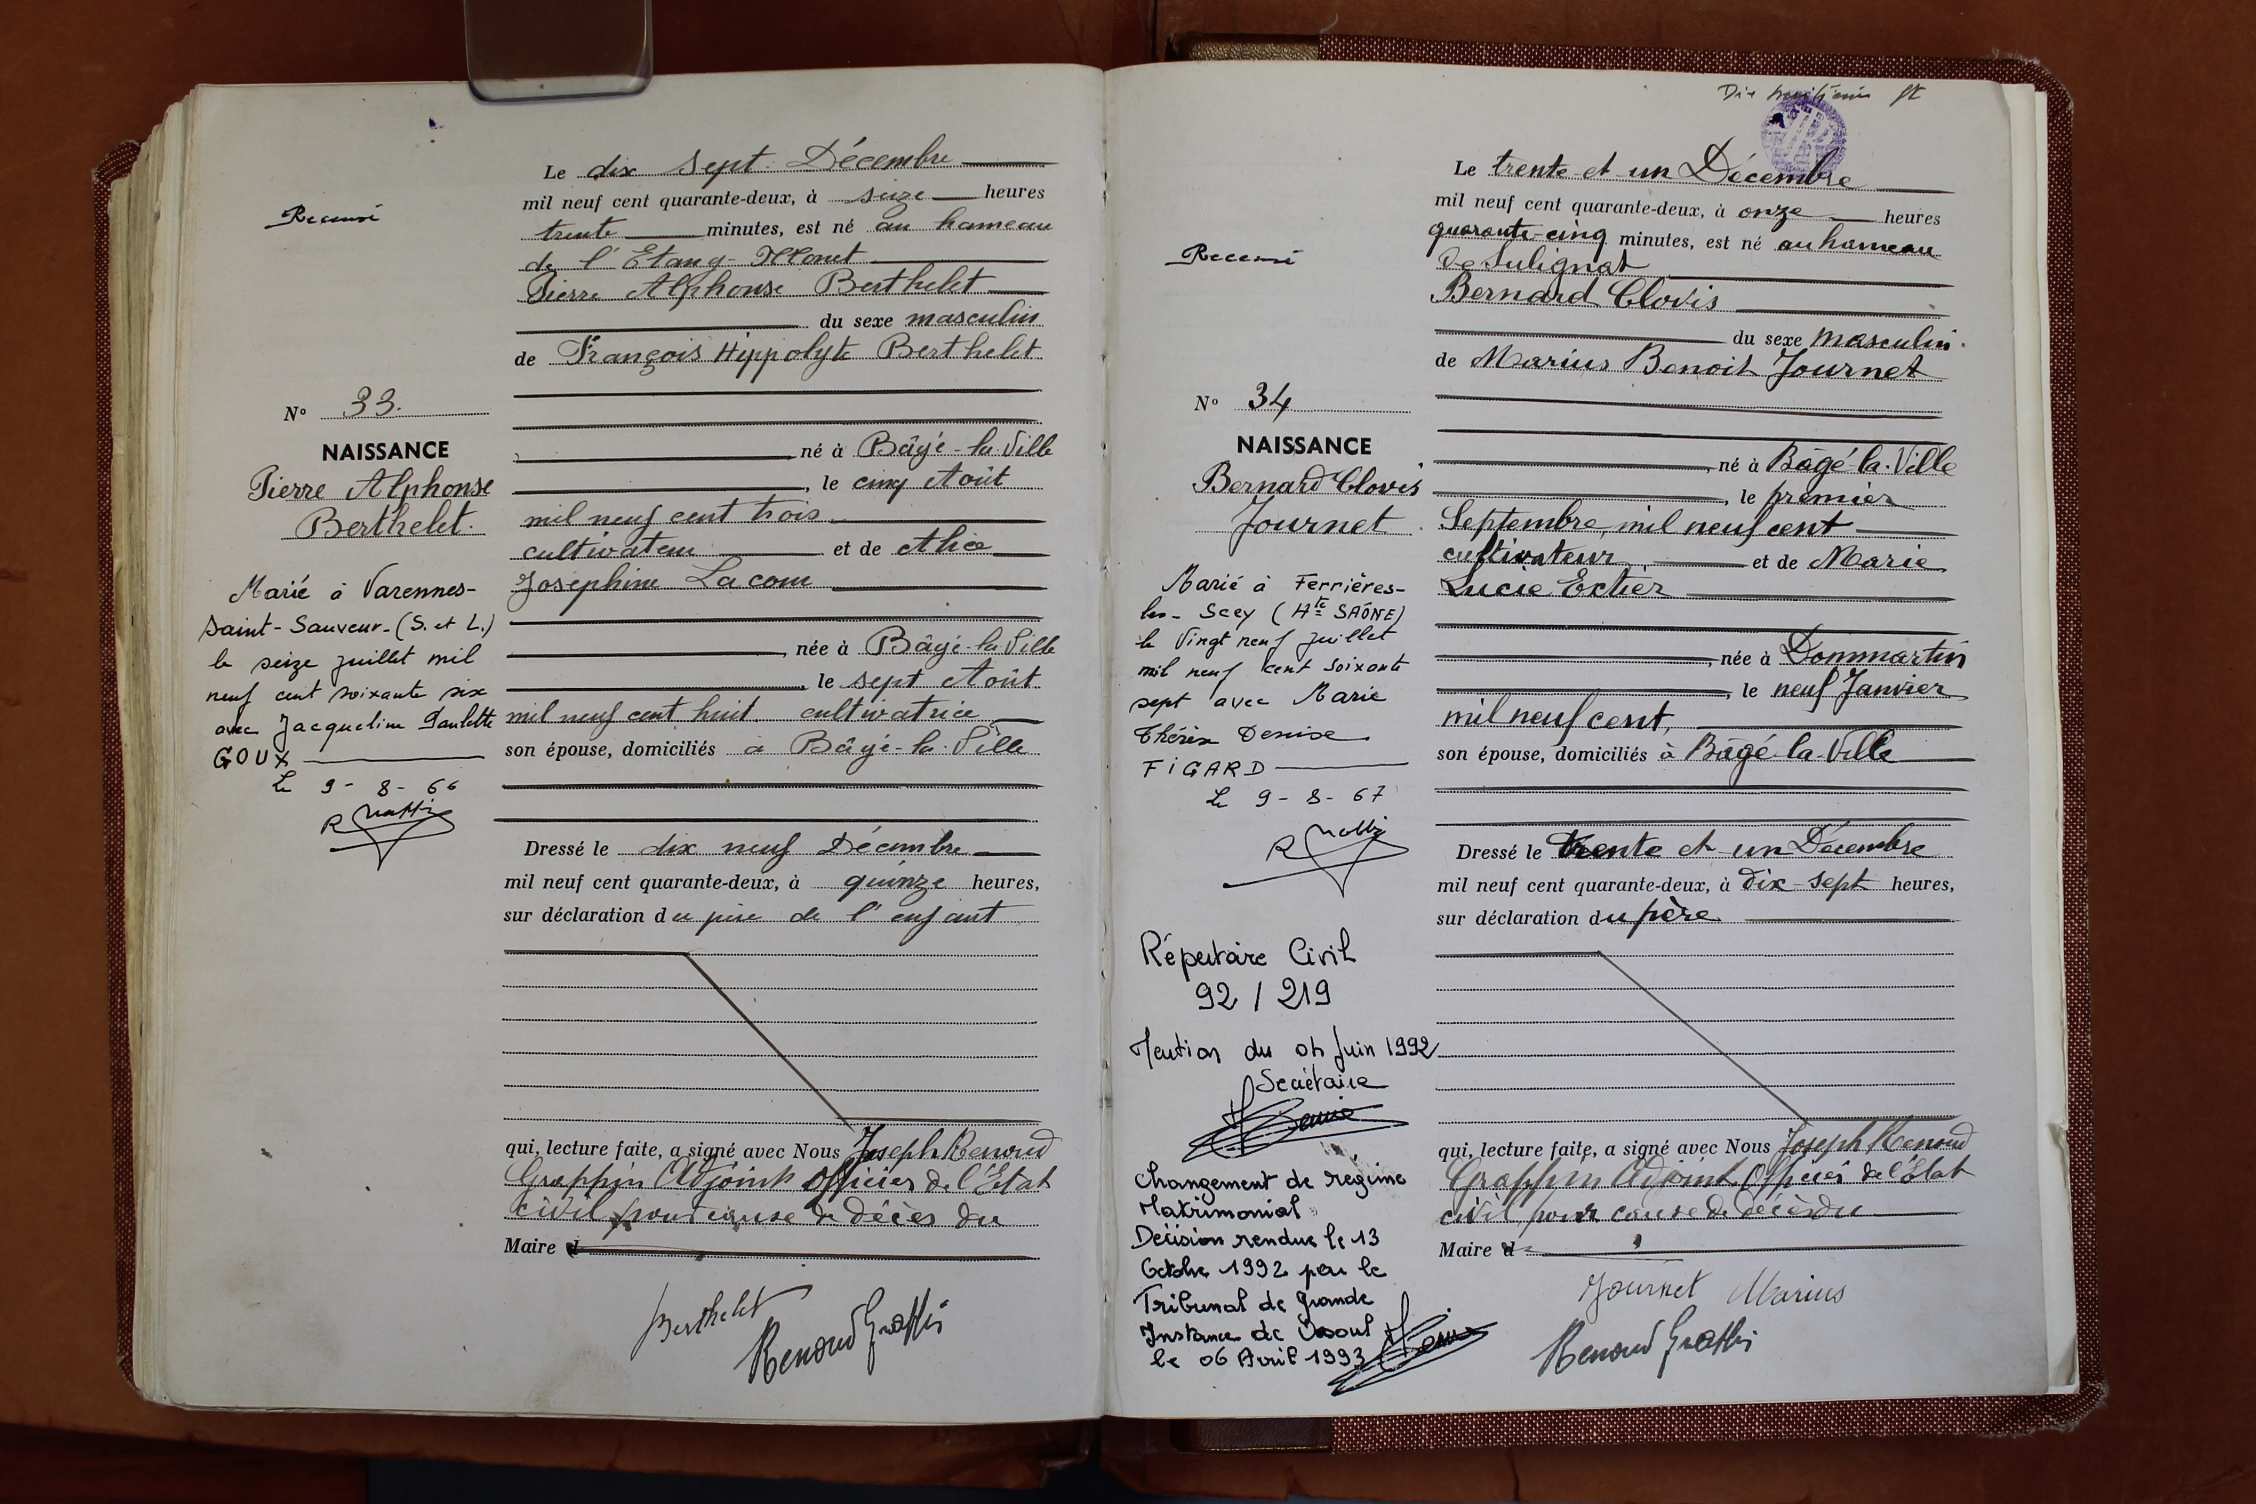 Recensé
N° 33.
NAISSANCE
Pierre Alphonse
Berthelet.
Marié à Varennes-
Saint-Sauveur-(S. et L.)
le seize juillet mil
neuf cent soixante six
avec Jacqueline Paulette
GOUX
Le 9-8-66
Le dix sept Décembre
mil neuf cent quarante-deux, à seize heures
trente minutes, est né au hameau
de l'Etang-
Pierre Alphonse Berthelet
du sexe masculin
de François Hippolyte Berthelet
né à Bâgé-la-Ville
, le cinq Août
mil neuf cent trois
cultivateur et de Alice
Joséphine Lacour
, née à Bâgé-la-Ville
, le sept Août
mil neuf cent huit. cultivatrice
son épouse, domiciliés à Bâgé-la-Ville
Dressé le dix neuf Décembre
mil neuf cent quarante-deux, à quinze heures,
sur déclaration du père de l'enfant
qui, lecture faite, a signé avec Nous Joseph Renoud
Grappin Adjoint Officier de l'Etat
civil pour cause de décès du
Maire d
Berthelet
Renoud Grappin
Recensé
N° 34
NAISSANCE
Bernard Clovis
Journet
Marié à Ferrières-
les-Scey (Hte SAÔNE)
le Vingt neuf juillet
mil neuf cent soixante
sept avec Marie
Thérèse Denise
FIGARD
Le 9-8-67
Répertoire Civil
92 / 219
Mention du 04 Juin 1992
Secrétaire
Changement de régime
Matrimonial
Décision rendue le 13
Octobre 1992 par le
Tribunal de Grande
Instance de Vesoul
le 06 Avril 1993
Le trente et un Décembre
mil neuf cent quarante-deux, à onze heures
quarante-cinq minutes, est né au hameau
de Sulignat
Bernard Clovis
du sexe masculin.
de Marius Benoit Journet
, né à Bâgé-la-Ville
, le premier
Septembre, mil neuf cent
cultivateur et de Marie
Lucie Extier
, née à Dommartin
, le neuf Janvier
mil neuf cent,
son épouse, domiciliés à Bâgé-la-Ville
Dressé le trente et un Décembre
mil neuf cent quarante-deux, à dix-sept heures,
sur déclaration du père
qui, lecture faite, a signé avec Nous Joseph Renoud
Grappin Adjoint Officier de l'Etat
civil, pour cause de décès du
Maire d
Journet Marius
Renoud Grappin